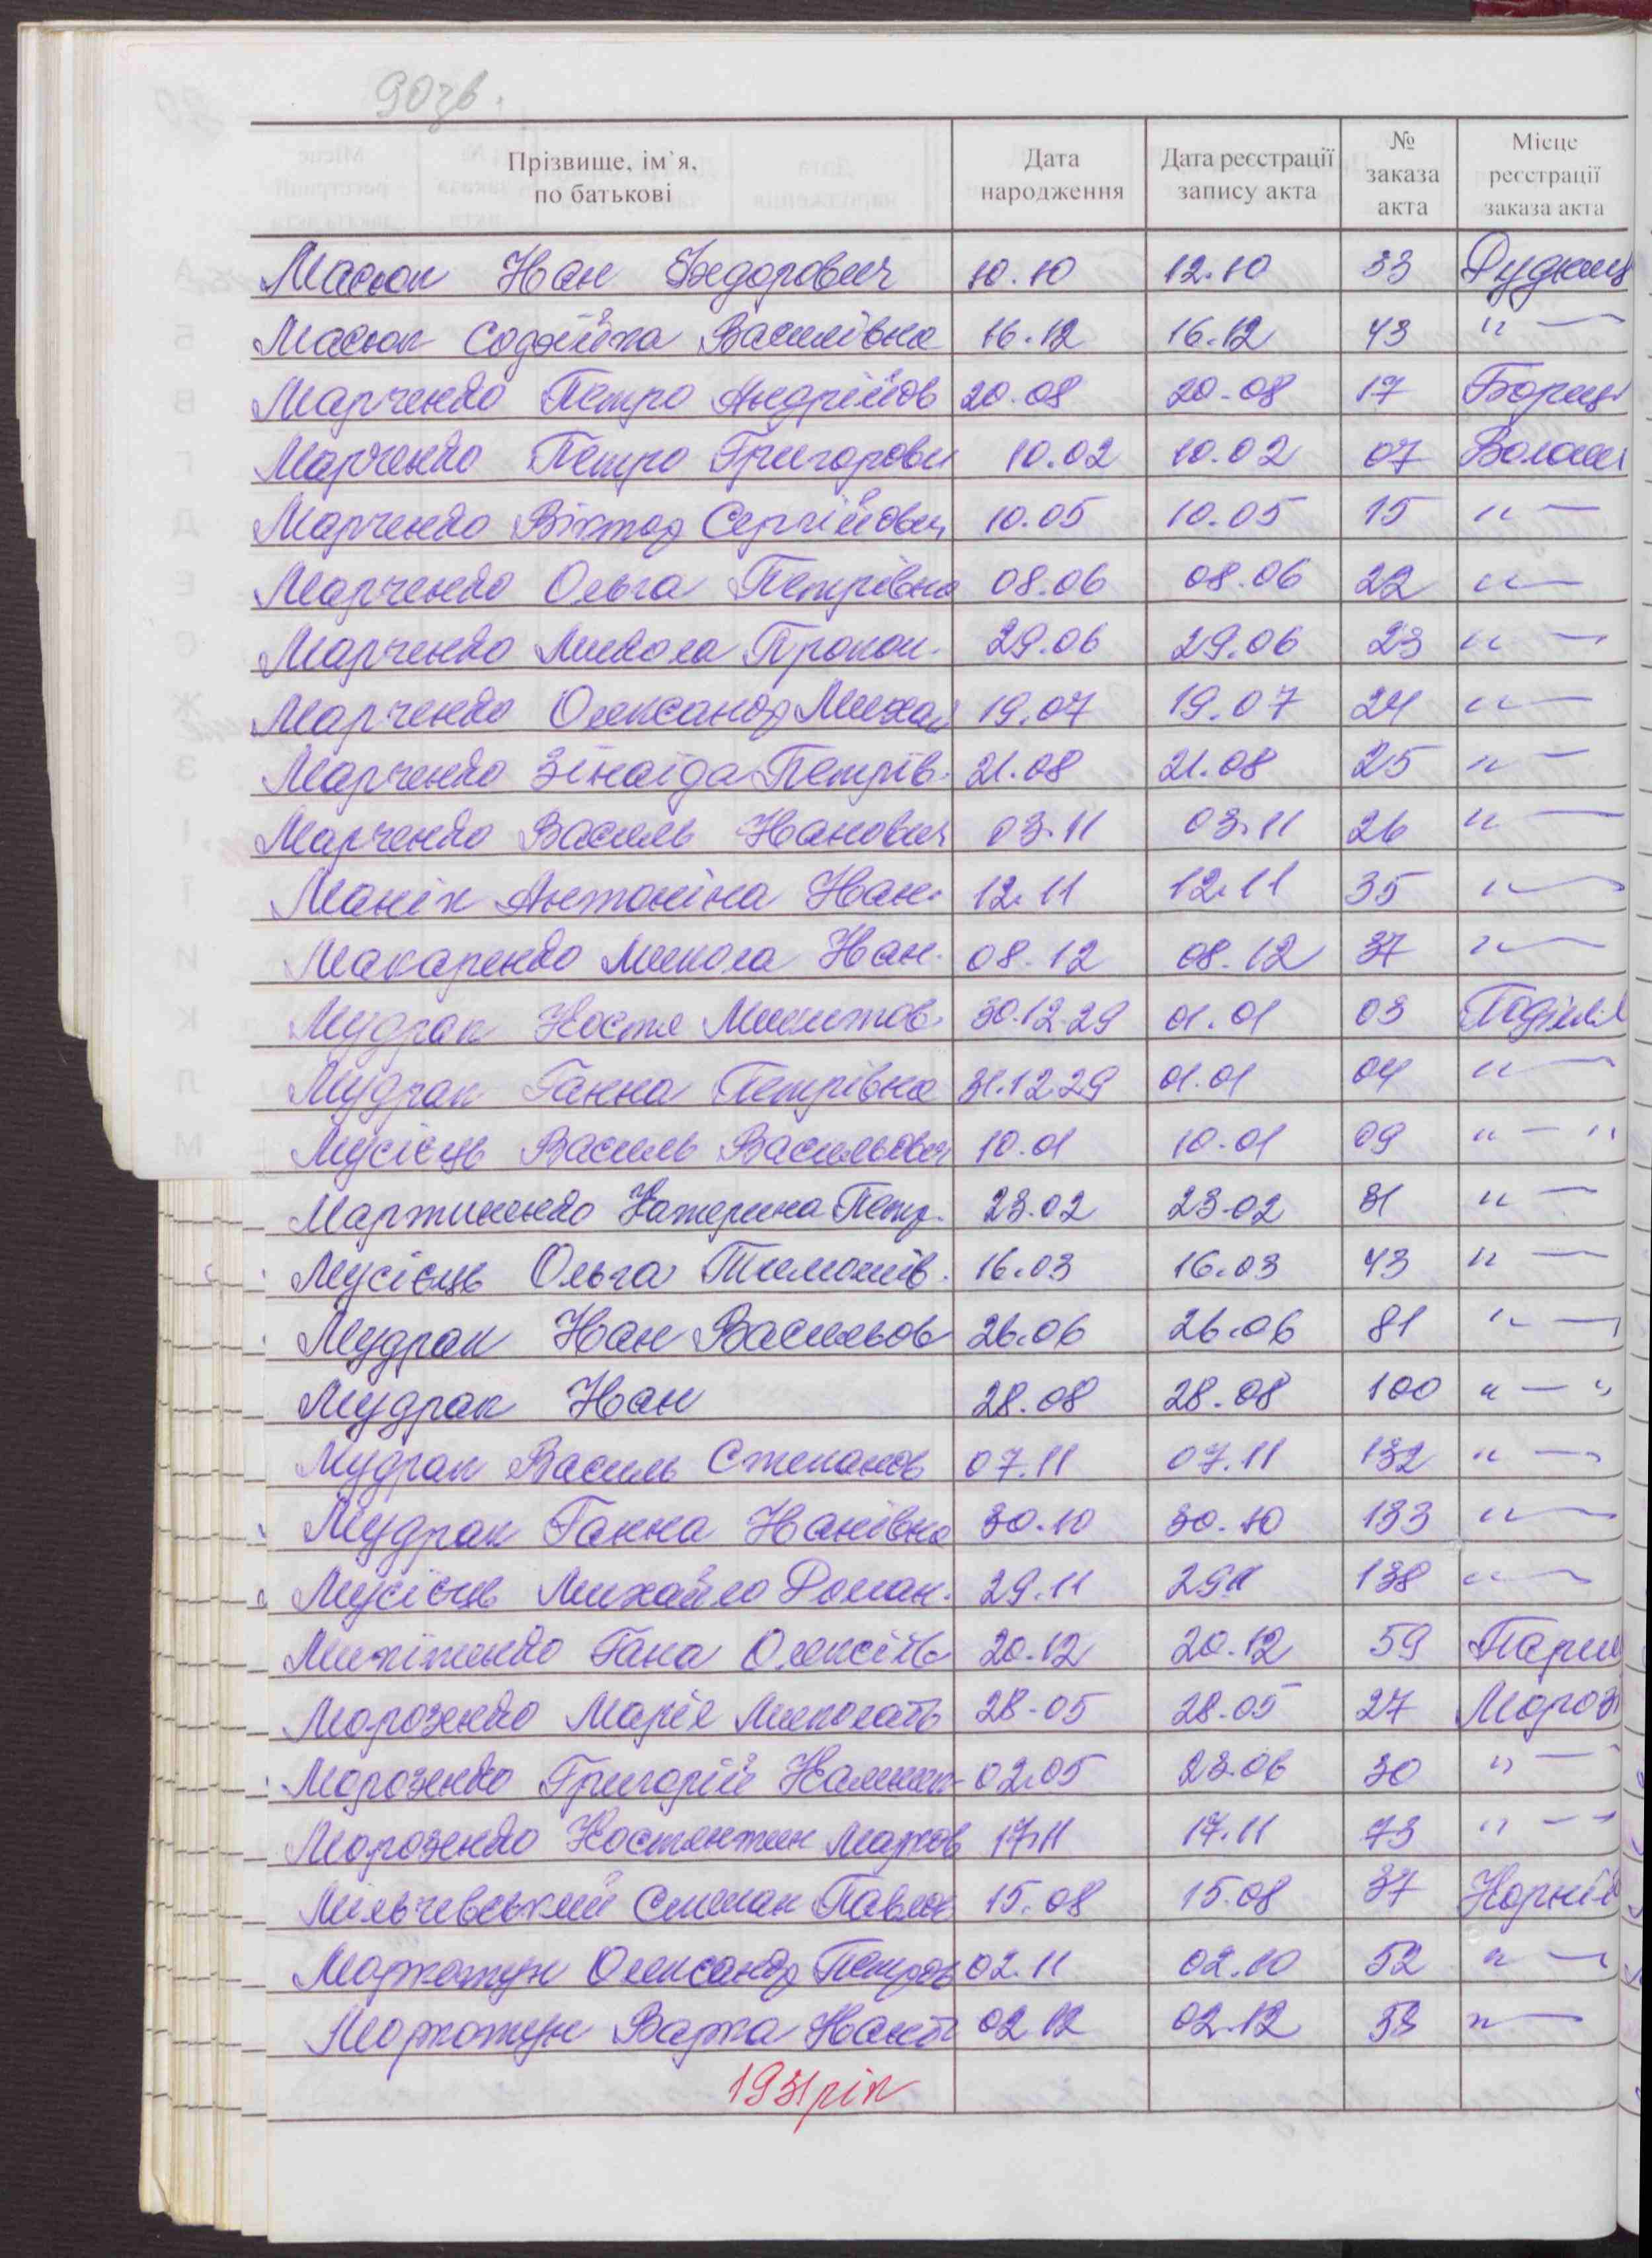 90зв.
Прізвище, ім`я, по батькові | Дата народження | Дата реєстрації запису акта | № заказа акта | Місце реєстрації заказа акта
Масюк Іван Федорович 10.10 12.10 33 Рудкиц
Масюк Софійка Василівна 16.12 16.12 43 "—
Марченко Петро Андрійов 20.08 20.08 17 Бориц
Марченко Петро Григорови 10.02 10.02 07 Волош
Марченко Віктор Сергійович 10.05 10.05 15 "—
Марченко Ольга Петрівна 08.06 08.06 22 "—
Марченко Микола Прокоп. 29.06 29.06 23 "—
Марченко Олександр Михай 19.07 19.07 24 "—
Марченко Зінаіда Петрів. 21.08 21.08 25 "—
Марченко Василь Іванович 03.11 03.11 26 "—
Манік Антоніна Іван. 12.11 12.11 35 "—
Макаренко Микола Іван. 08.12 08.12 37 "—
Мудрак Костя Микитов. 30.12.29 01.01 03 Поділл
Мудрак Ганна Петрівна 31.12.29 01.01 04 "—
Мусієць Василь Васильович 10.01 10.01 09 "—"
Мартиненко Катерина Петр. 23.02 23.02 31 "—
Мусієць Ольга Тимошів. 16.03 16.03 43 "—
Мудрак Іван Васильов 26.06 26.06 81 "—
Мудрак Іван 28.08 28.08 100 "—"
Мудрак Василь Степанов 07.11 07.11 132 "—
Мудрак Ганна Іванівна 30.10 30.10 133 "—
Мусієць Михайло Роман. 29.11 29.11 138 "—
Микитенко Гана Олексіїв 20.12 20.12 59 Пари
Морозенко Марія Миколаїв 28.05 28.05 27 Мороз
Морозенко Григорій 02.05 23.06 30 "—
Морозенко Костянтин Марков 17.11 17.11 73 "—
Мільчевський Степан Павлов 15.08 15.08 37 Корнів
Моржотун Олександр Петров 02.11 02.10 52 "—
Моржотун Варка Іванів 02.12 02.12 53 "—
1931рік